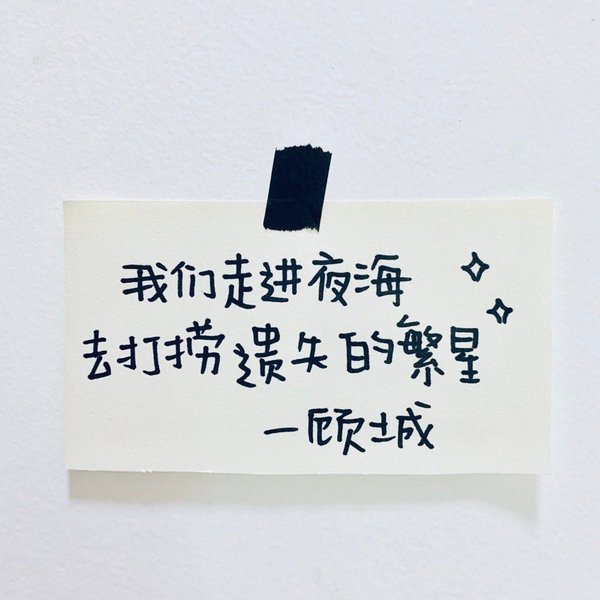 我们走进夜海
去打捞遗失的繁星
—顾城